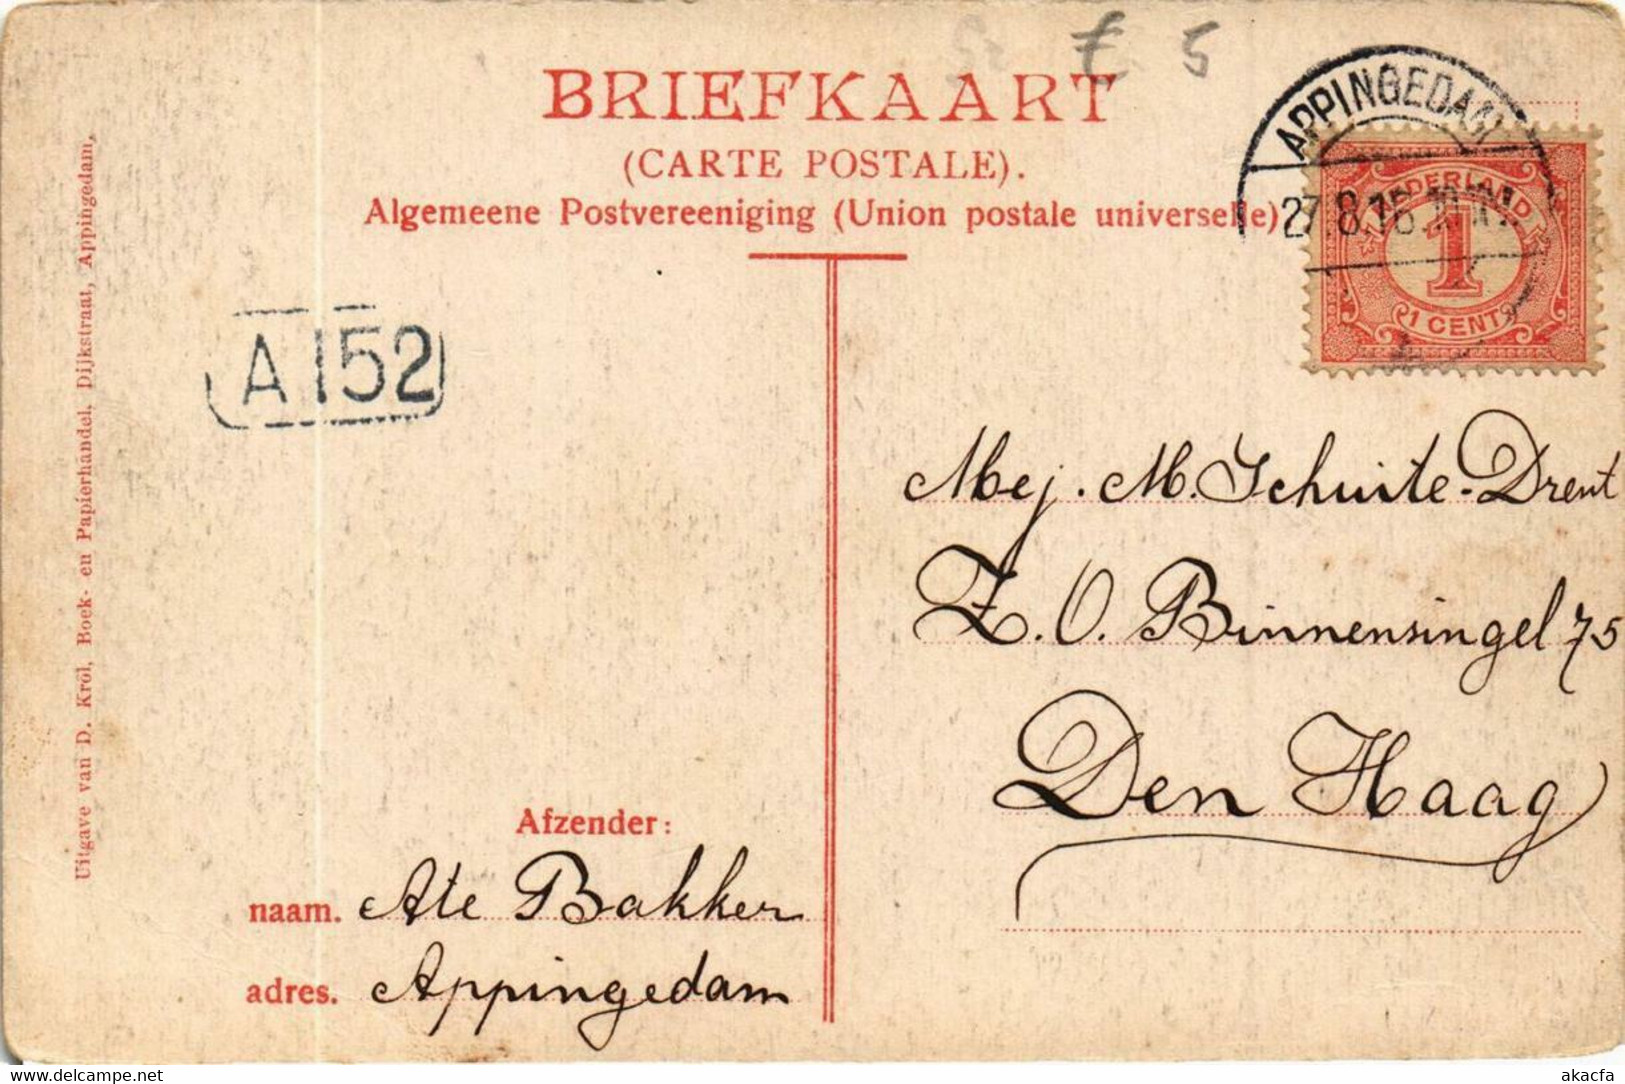 € 5
BRIEFKAART
(CARTE POSTALE).
Algemeene Postvereeniging (Union postale universelle)
APPINGEDAM
27.8.15
NEDERLAND
1
1 CENT
A 152
Mej. M. Schuite-Drent
Z.O. Binnensingel 75
Den Haag
Afzender:
naam. Ate Bakker
adres. Appingedam
Uitgave van D. Kröl, Boek- en Papierhandel, Dijkstraat, Appingedam.
delcampe.net
akacfa